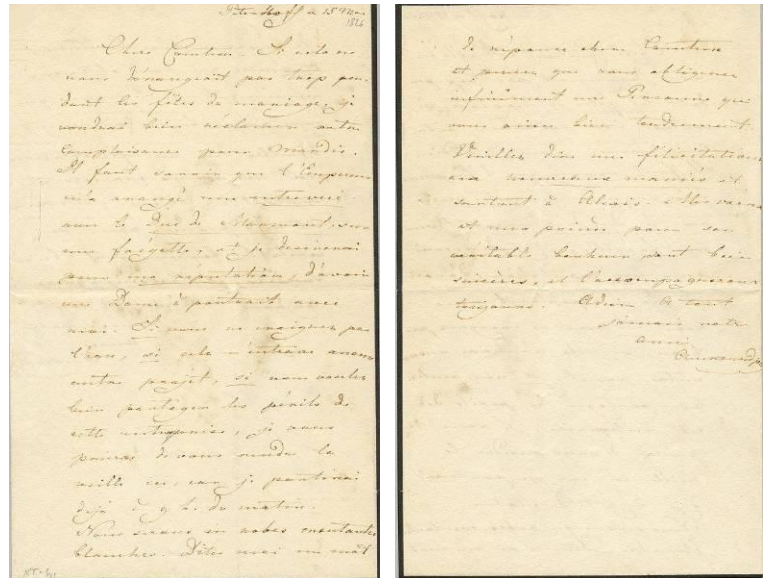 Peterhoff à 15
1826
Chere Comtesse. Si cela ne
vous dérangeait pas trop pen-
dant les fêtes du mariage, je
voudrai bien réclamer votre
complaisance pour Mardis.
Il faut savoir que l'Empereur
m'a arrangé une entrevue
avec le Duc de Marmont, sur
une frégatte, et je désirerai
pour ma reputation, d'avoir
une Dame à portrait avec
moi. Si vous ne craignez pas
l'eau, si cela n'entrave aucun
autre projet, si vous voulez
bien partager les périls de
cette entreprise, je vous
prierai de vous rendre la
veille ici, car je partirai
déjà à 9 h. du matin.
Nous serons en robes montantes
blanches. Dites moi un mot
de réponse chere Comtesse
et pensez que vous obligerez
infiniment une Personne qui
vous aime bien tendrement
Veuillez dire mes félicitations
aux nouveaux mariés et
surtout à Alexis. Mes vœux
et mes prières pour son
véritable bonheur sont bien
sincères, et l'accompagneront
toujours. Adieu à tout
jamais votre
amie